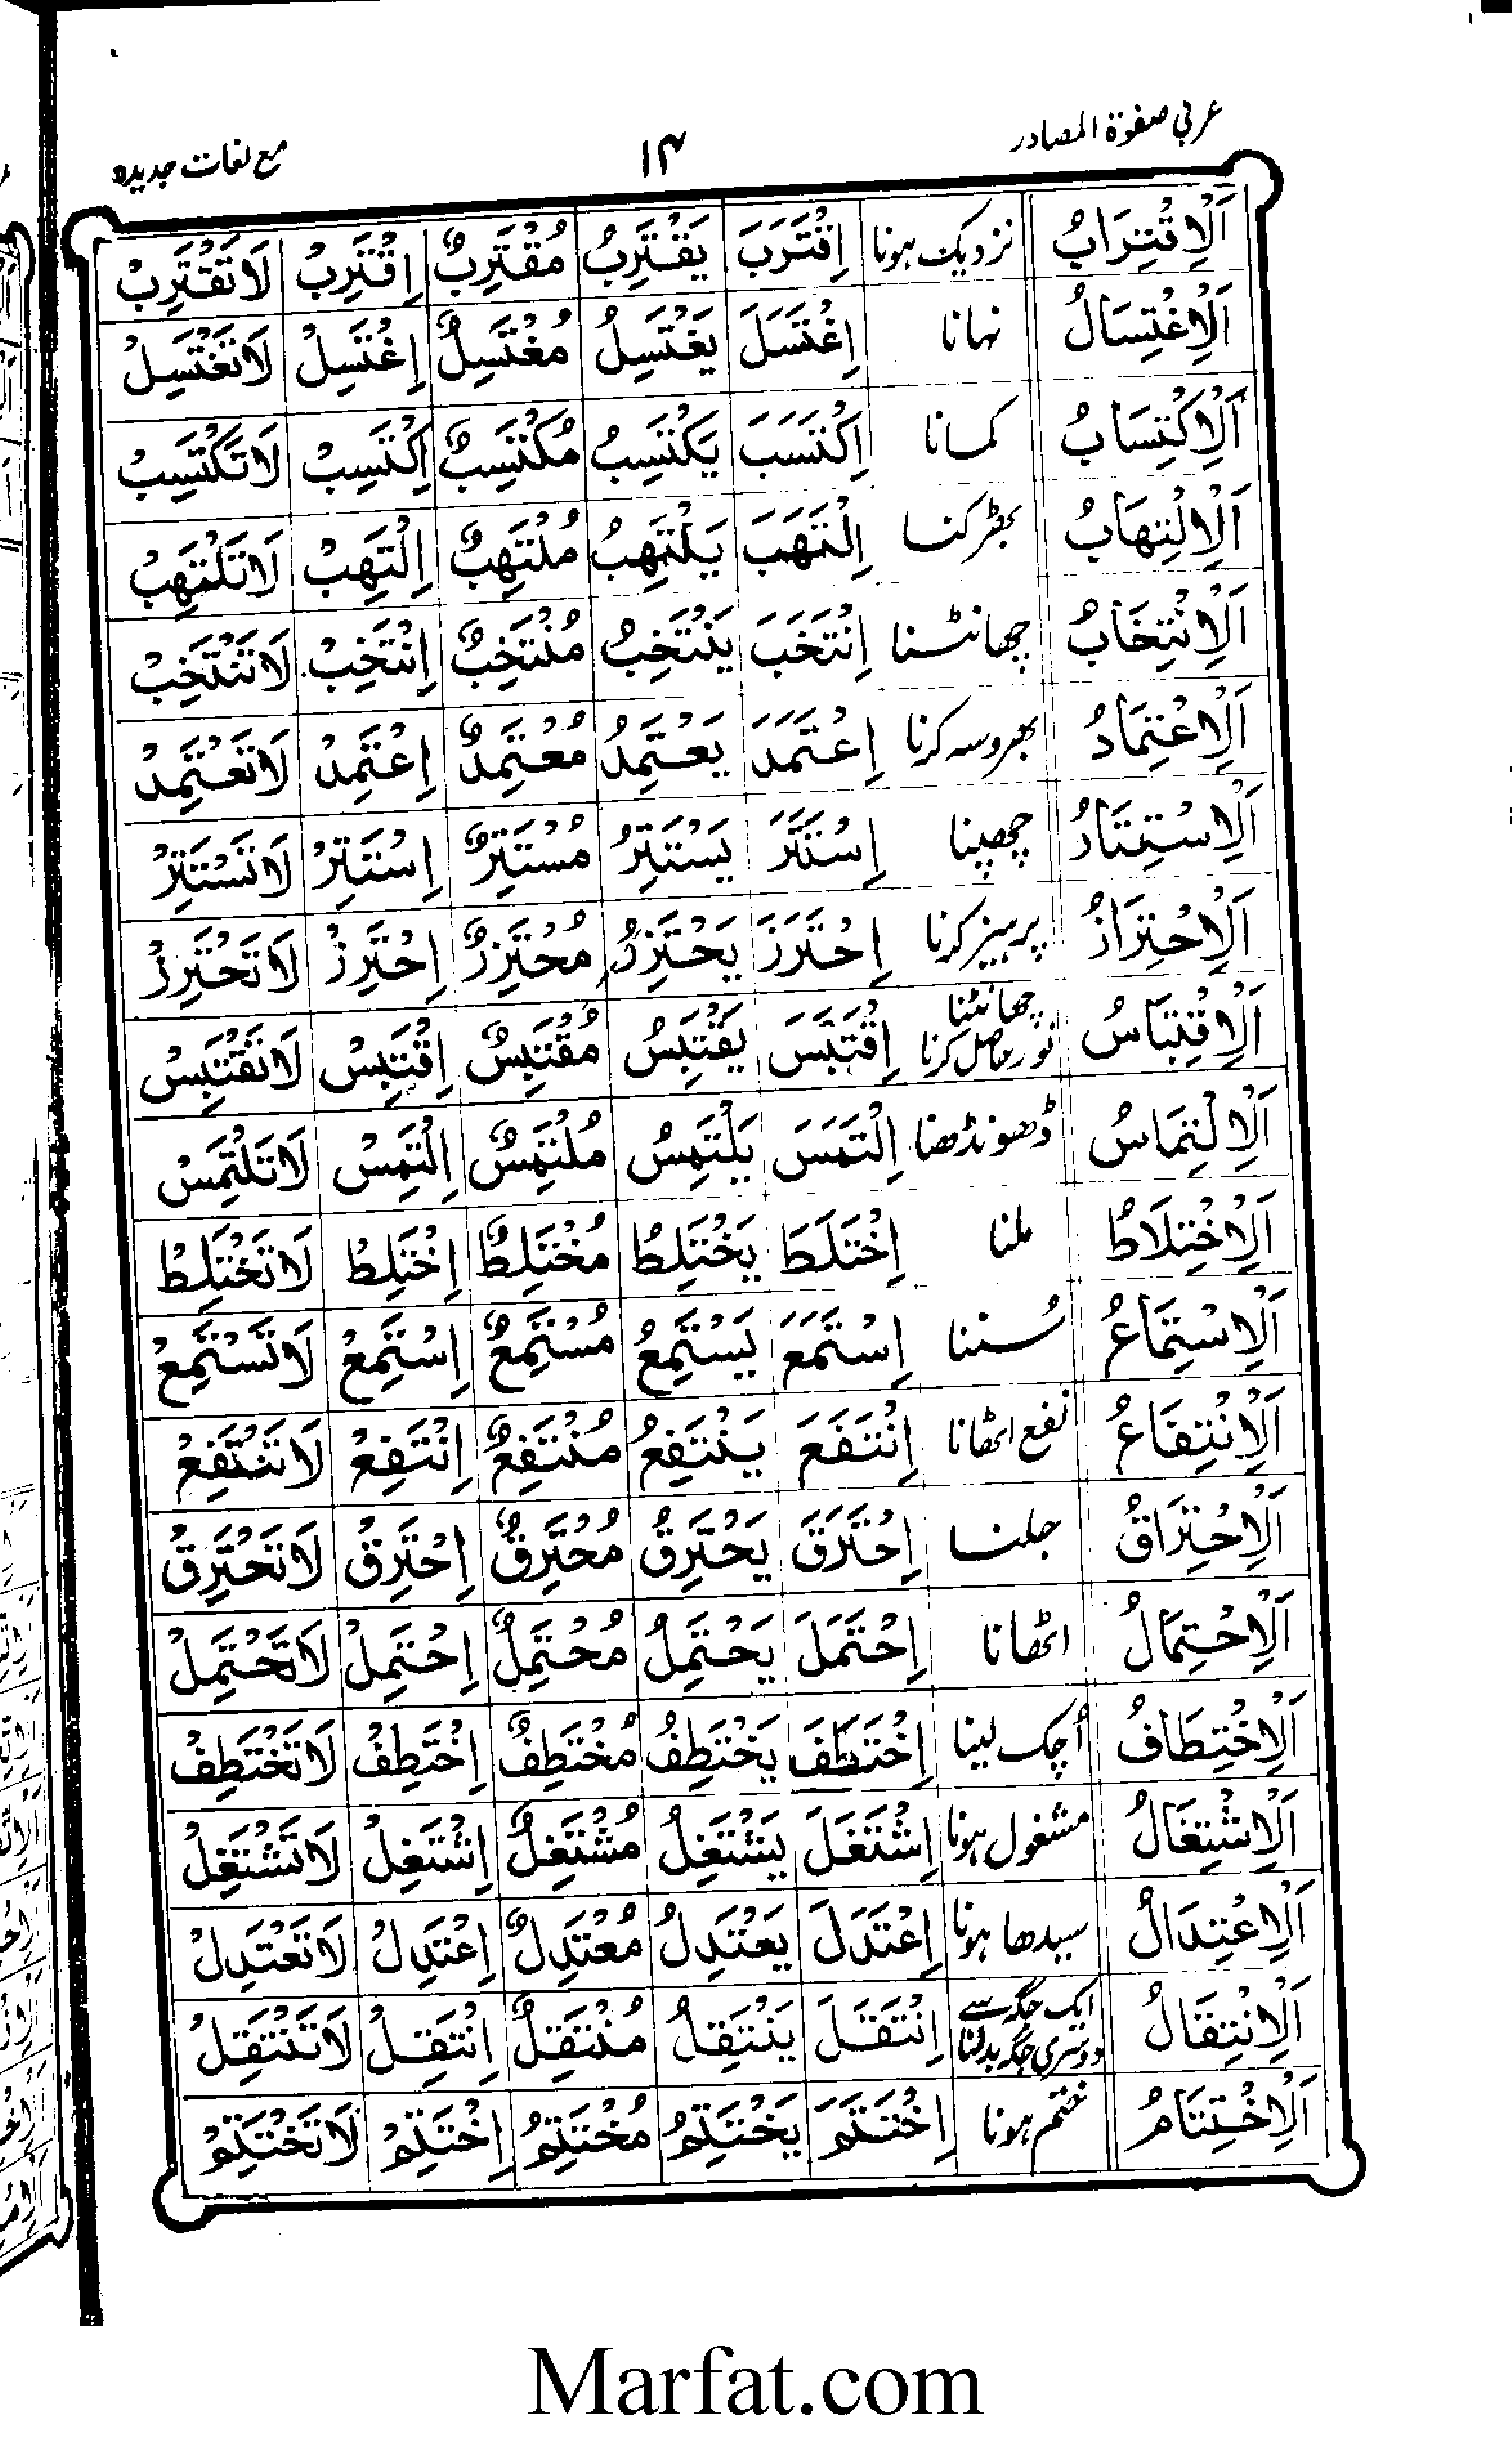 عربی صفوۃ المصادر ۱۴ مع لغات جدیدہ
اَلْاِقْتِرَابُ نزدیک ہونا اِقْتَرَبَ يَقْتَرِبُ مُقْتَرِبٌ اِقْتَرِبْ لَاتَقْتَرِبْ
اَلْاِغْتِسَالُ نہانا اِغْتَسَلَ يَغْتَسِلُ مُغْتَسِلٌ اِغْتَسِلْ لَاتَغْتَسِلْ
اَلْاِكْتِسَابُ کمانا اِكْتَسَبَ يَكْتَسِبُ مُكْتَسِبٌ اِكْتَسِبْ لَاتَكْتَسِبْ
اَلْاِلْتِهَابُ بھڑکنا اِلْتَهَبَ يَلْتَهِبُ مُلْتَهِبٌ اِلْتَهِبْ لَاتَلْتَهِبْ
اَلْاِنْتِخَابُ چھانٹنا اِنْتَخَبَ يَنْتَخِبُ مُنْتَخِبٌ اِنْتَخِبْ لَاتَنْتَخِبْ
اَلْاِعْتِمَادُ بھروسہ کرنا اِعْتَمَدَ يَعْتَمِدُ مُعْتَمِدٌ اِعْتَمِدْ لَاتَعْتَمِدْ
اَلْاِسْتِتَارُ چھپنا اِسْتَتَرَ يَسْتَتِرُ مُسْتَتِرٌ اِسْتَتِرْ لَاتَسْتَتِرْ
اَلْاِحْتِرَازُ پرہیز کرنا اِحْتَرَزَ يَحْتَرِزُ مُحْتَرِزٌ اِحْتَرِزْ لَاتَحْتَرِزْ
اَلْاِقْتِبَاسُ چھانٹنا نور حاصل کرنا اِقْتَبَسَ يَقْتَبِسُ مُقْتَبِسٌ اِقْتَبِسْ لَاتَقْتَبِسْ
اَلْاِلْتِمَاسُ ڈھونڈھنا اِلْتَمَسَ يَلْتَمِسُ مُلْتَمِسٌ اِلْتَمِسْ لَاتَلْتَمِسْ
اَلْاِخْتِلَاطُ ملنا اِخْتَلَطَ يَخْتَلِطُ مُخْتَلِطٌ اِخْتَلِطْ لَاتَخْتَلِطْ
اَلْاِسْتِمَاعُ سُننا اِسْتَمَعَ يَسْتَمِعُ مُسْتَمِعٌ اِسْتَمِعْ لَاتَسْتَمِعْ
اَلْاِنْتِفَاعُ نفع اٹھانا اِنْتَفَعَ يَنْتَفِعُ مُنْتَفِعٌ اِنْتَفِعْ لَاتَنْتَفِعْ
اَلْاِحْتِرَاقُ جلنا اِحْتَرَقَ يَحْتَرِقُ مُحْتَرِقٌ اِحْتَرِقْ لَاتَحْتَرِقْ
اَلْاِحْتِمَالُ اٹھانا اِحْتَمَلَ يَحْتَمِلُ مُحْتَمِلٌ اِحْتَمِلْ لَاتَحْتَمِلْ
اَلْاِخْتِطَافُ اُچک لینا اِخْتَطَفَ يَخْتَطِفُ مُخْتَطِفٌ اِخْتَطِفْ لَاتَخْتَطِفْ
اَلْاِشْتِغَالُ مشغول ہونا اِشْتَغَلَ يَشْتَغِلُ مُشْتَغِلٌ اِشْتَغِلْ لَاتَشْتَغِلْ
اَلْاِعْتِدَالُ سیدھا ہونا اِعْتَدَلَ يَعْتَدِلُ مُعْتَدِلٌ اِعْتَدِلْ لَاتَعْتَدِلْ
اَلْاِنْتِقَالُ ایک جگہ سے دوسری جگہ بدلنا اِنْتَقَلَ يَنْتَقِلُ مُنْتَقِلٌ اِنْتَقِلْ لَاتَنْتَقِلْ
اَلْاِخْتِتَامُ ختم ہونا اِخْتَتَمَ يَخْتَتِمُ مُخْتَتِمٌ اِخْتَتِمْ لَاتَخْتَتِمْ
Marfat.com